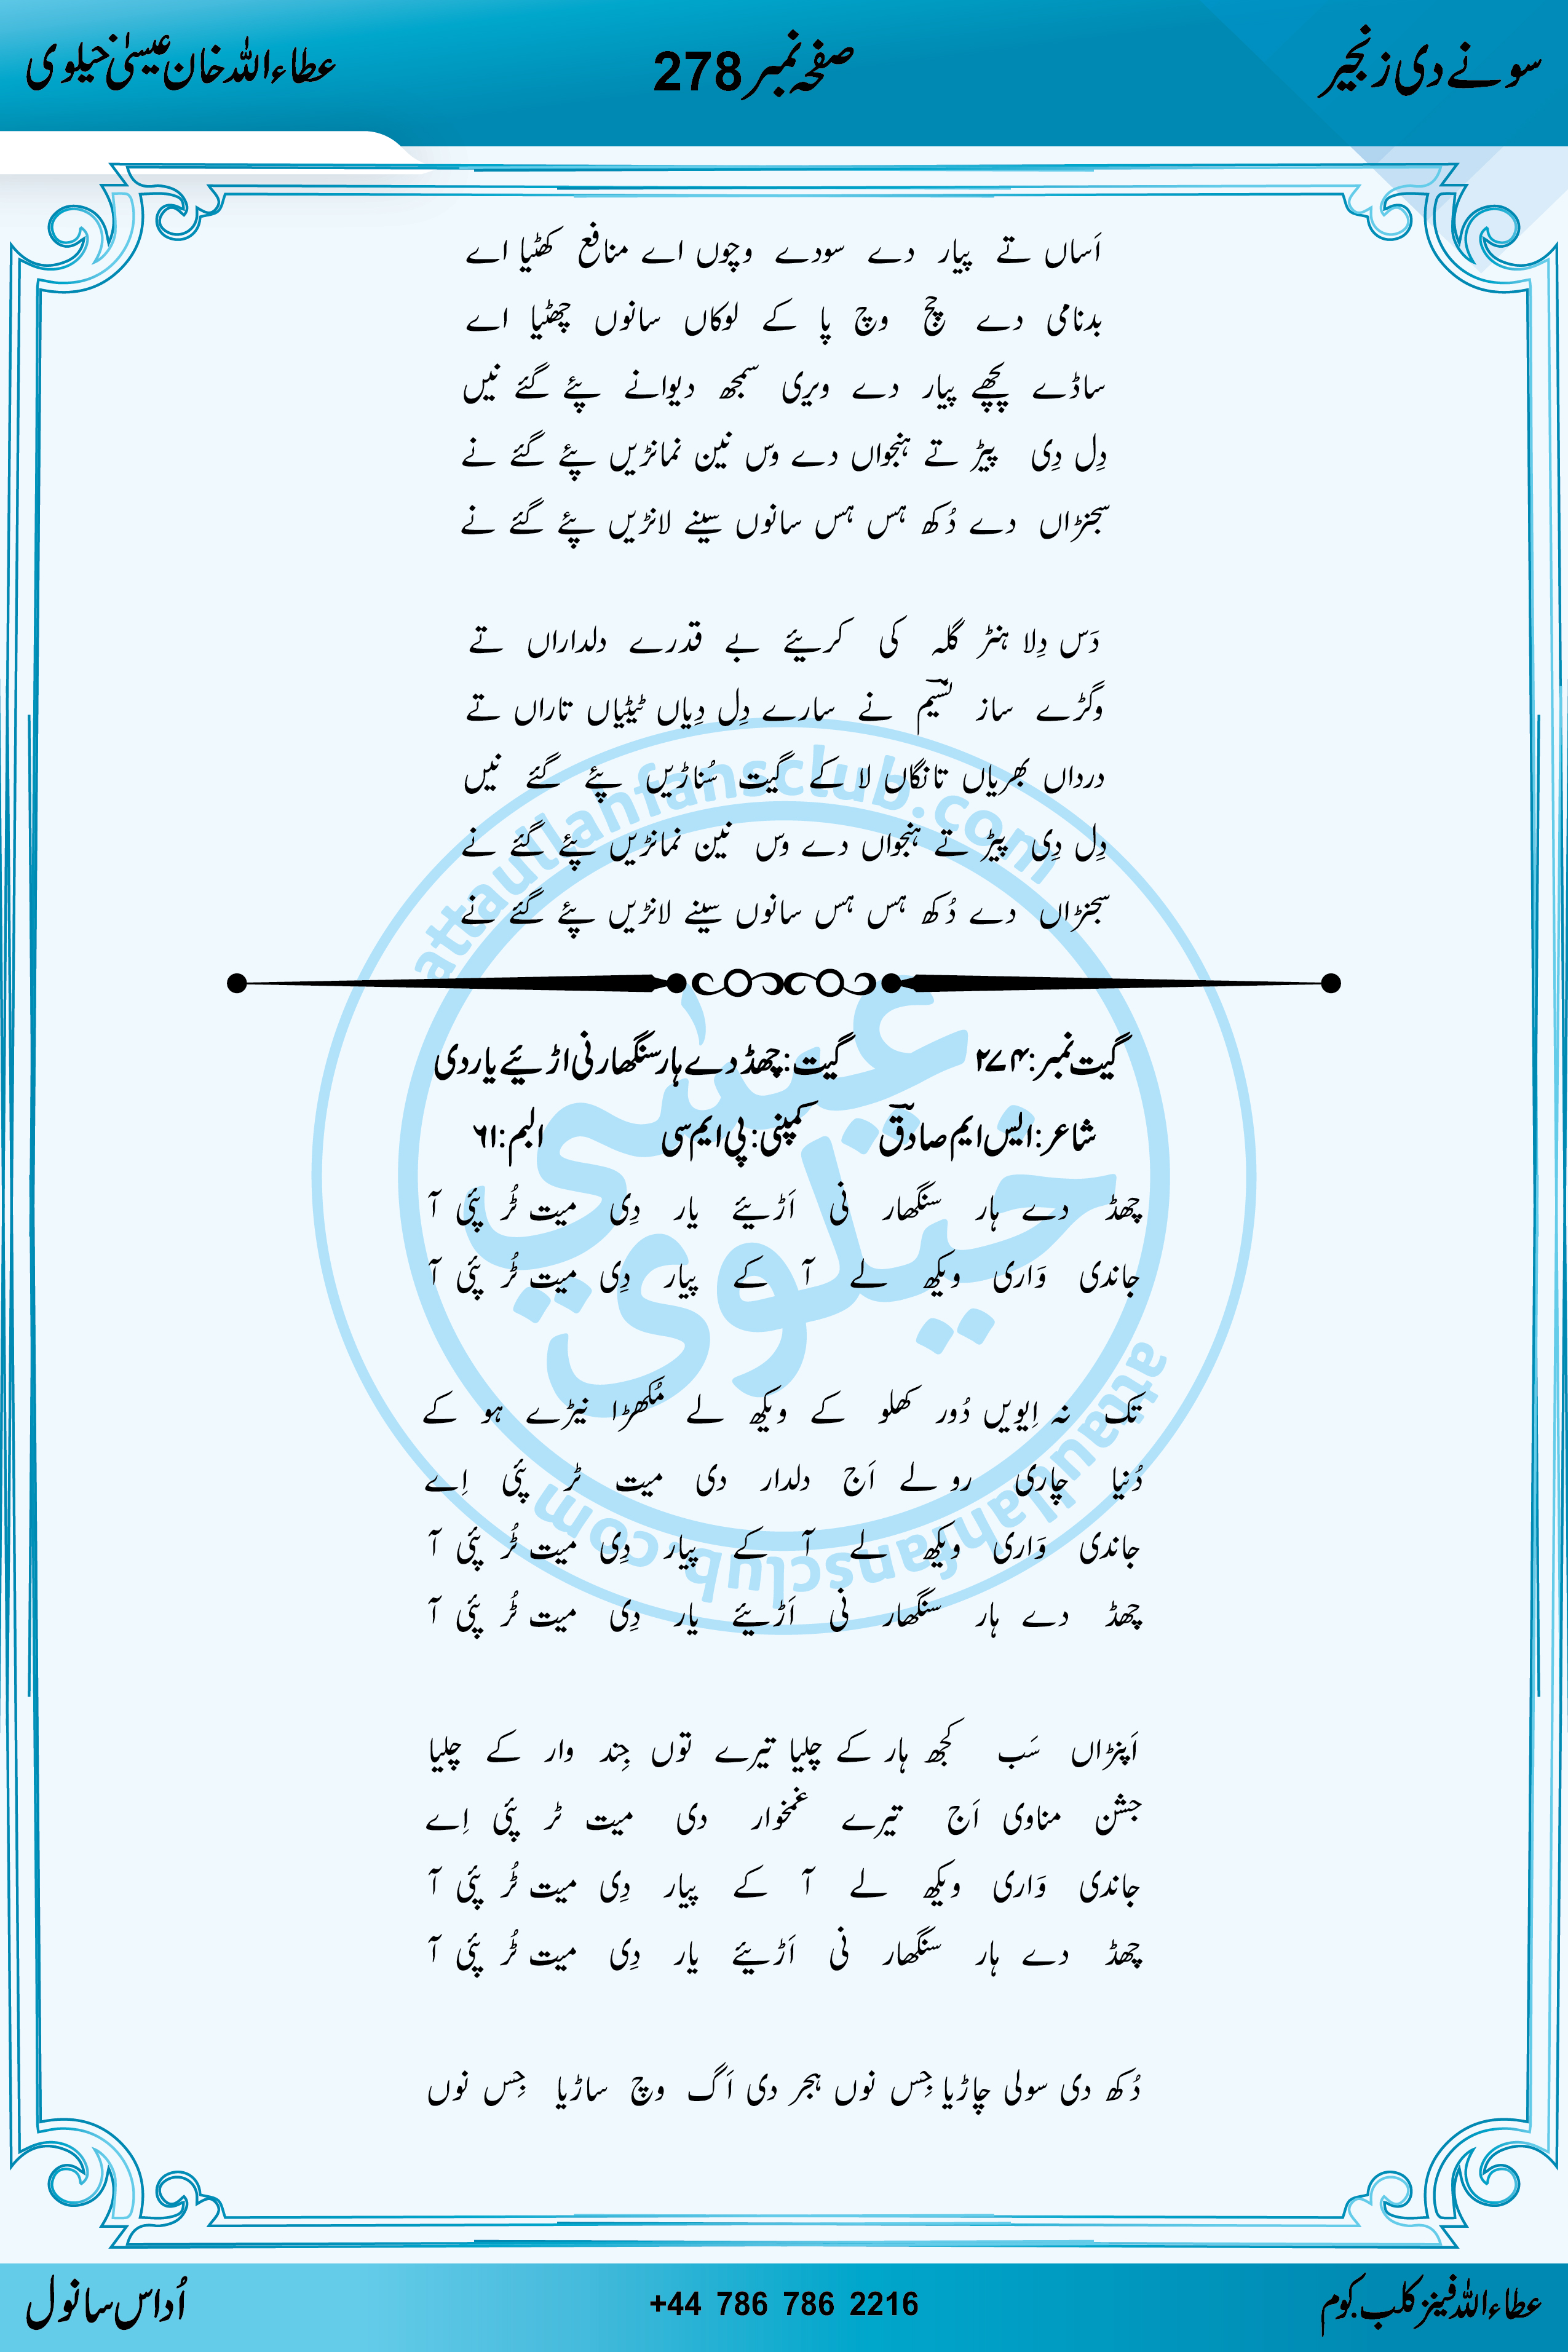 سونے دی زنجیر صفحہ نمبر 278 عطاءاللہ خان عیسیٰ خیلوی
اَساں تے پیار دے سودے وچوں اے منافع کھٹیا اے
بدنامی دے چھج وچ پا کے لوکاں سانوں چھٹیا اے
ساڈے پچھے پیار دے ویری سمجھ دیوانے پئے گئے نیں
دِل دِی پیڑ تے ہنجواں دے وس نین نمانڑیں پئے گئے نے
سجنڑاں دے دُکھ ہس ہس سانوں سینے لانڑیں پئے گئے نے
دَس دِلا ہنڑ گلہ کی کریئے بے قدرے دلداراں تے
وگڑے ساز نسیمؔ نے سارے دِل دِیاں ٹیٹیاں تاراں تے
درداں بھریاں تانگاں لا کے گیت سُناڑیں پئے گئے نیں
دِل دِی پیڑ تے ہنجواں دے وس نین نمانڑیں پئے گئے نے
سجنڑاں دے دُکھ ہس ہس سانوں سینے لانڑیں پئے گئے نے
گیت نمبر: ۲۷۴ گیت: چھڈ دے ہار سنگھار نی اڑئیے یار دی
شاعر: ایس ایم صادقؔ کمپنی: پی ایم سی البم: ۶۱
چھڈ دے ہار سنگھار نی اَڑیئے یار دِی میت ٹُر پئی آ
جاندی وَاری ویکھ لے آ کے پیار دِی میت ٹُر پئی آ
تک نہ اِیویں دُور کھلو کے ویکھ لے مُکھڑا نیڑے ہو کے
دُنیا چاری رو لے اَج دلدار دی میت ٹر پئی اِے
جاندی وَاری ویکھ لے آ کے پیار دِی میت ٹُر پئی آ
چھڈ دے ہار سنگھار نی اَڑیئے یار دِی میت ٹُر پئی آ
اَپنڑاں سَب کجھ ہار کے چلیا تیرے توں جِند وار کے چلیا
جشن مناوی اَج تیرے غمخوار دی میت ٹر پئی اِے
جاندی وَاری ویکھ لے آ کے پیار دِی میت ٹُر پئی آ
چھڈ دے ہار سنگھار نی اَڑیئے یار دِی میت ٹُر پئی آ
دُکھ دی سولی چاڑیا جِس نوں ہجر دی اَگ وچ ساڑیا جِس نوں
attaullahfansclub.com
عیسٰی
خیلوی
attaullahfansclub.com
عطاءاللہ فینز کلب.کوم +44 786 786 2216 اُداس سانول